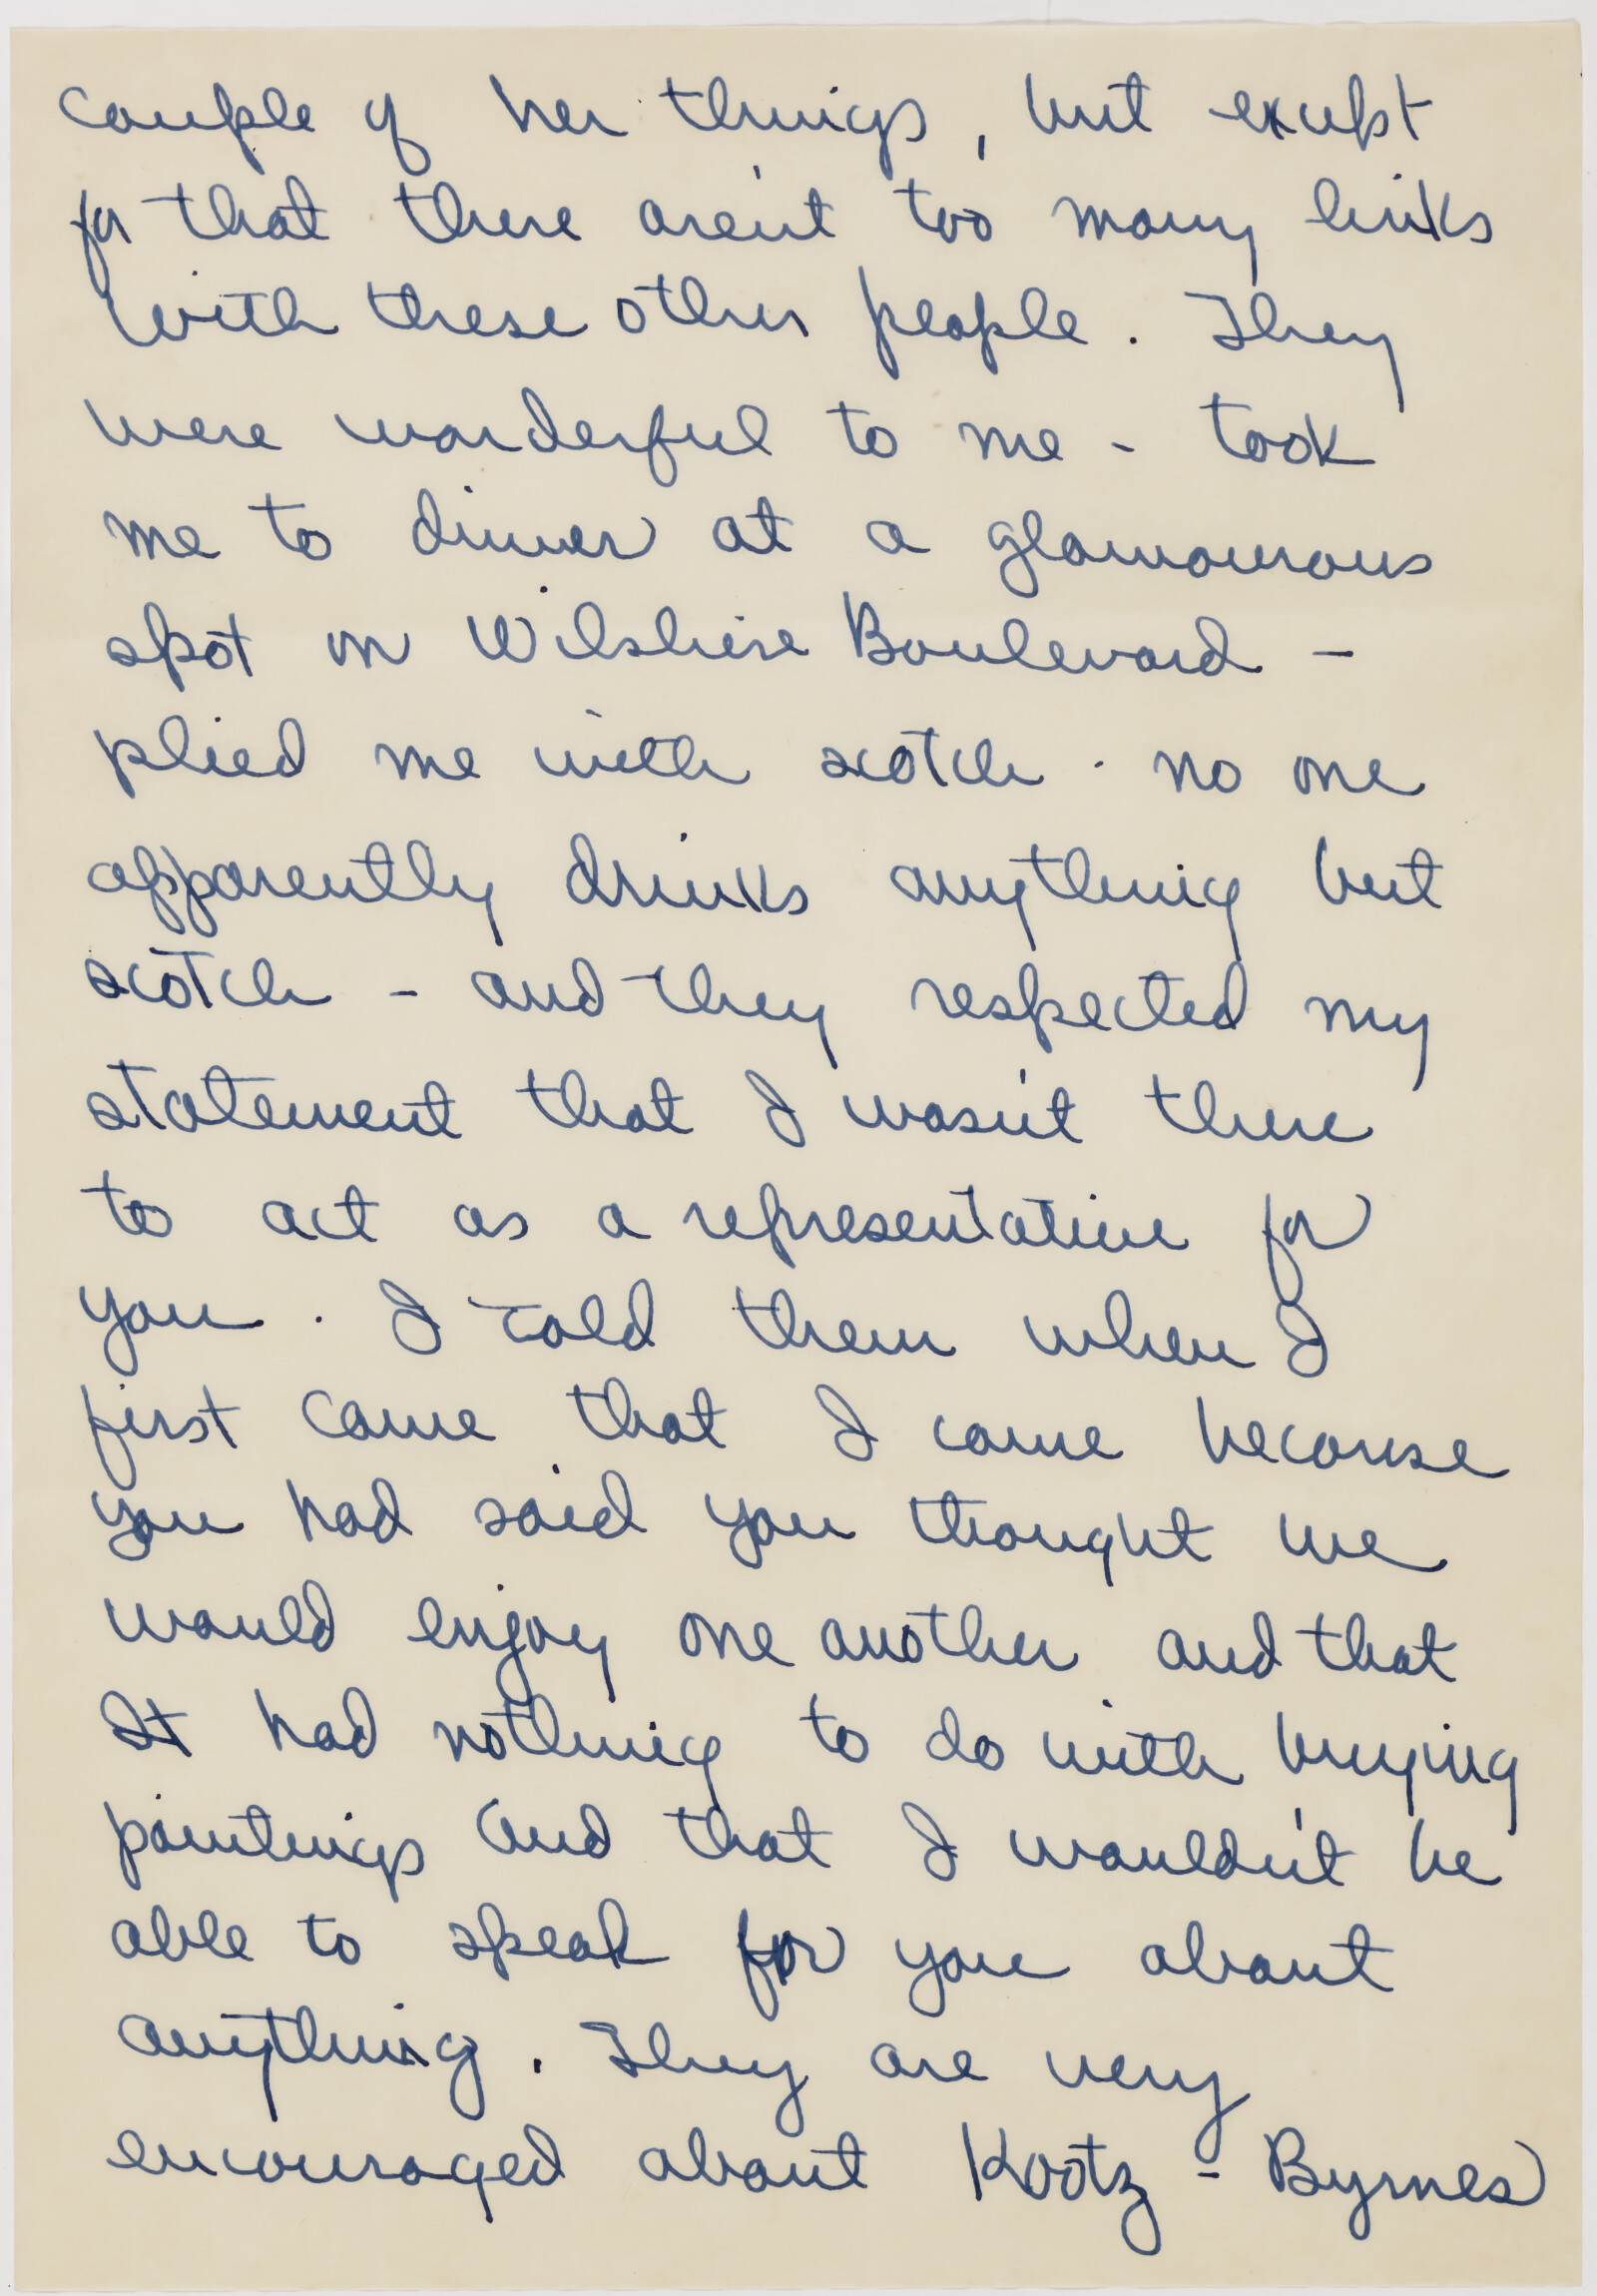 couple of her things, but except
for that there aren't too many links
with these other people. They
were wonderful to me - took
me to dinner at a glamourous
spot on Wilshire Boulevard -
plied me with scotch - no one
apparently drinks anything but
scotch - and they respected my
statement that I wasn't there
to act as a representative for
you. I told them when I
first came that I came because
you had said you thought we
would enjoy one another and that
It had nothing to do with buying
paintings and that I wouldn't be
able to speak for you about
anything. They are very
encouraged about Kootz - Byrnes